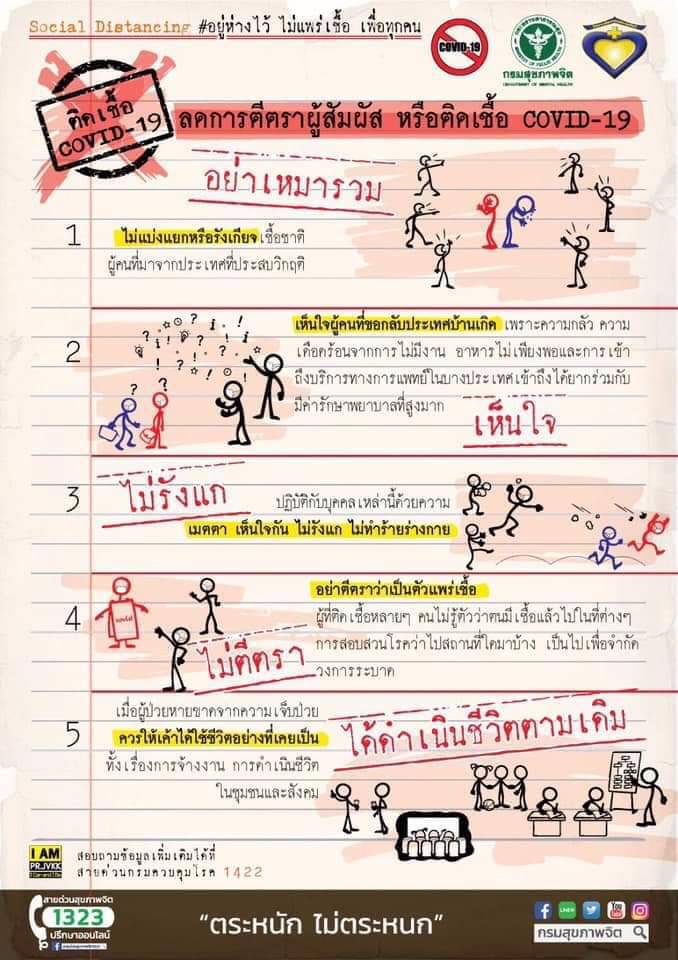 Social Distancing #อยู่ห่างไว้ ไม่แพร่เชื้อ เพื่อทุกคน
COVID-19
กรมสุขภาพจิต
DEPARTMENT OF MENTAL HEALTH
ติดเชื้อ
COVID-19
ลดการตีตราผู้สัมผัส หรือติดเชื้อ COVID-19
อย่าเหมารวม
1
ไม่แบ่งแยกหรือรังเกียจเชื้อชาติ
ผู้คนที่มาจากประเทศที่ประสบวิกฤติ
2
เห็นใจผู้คนที่ขอกลับประเทศบ้านเกิด เพราะความกลัว ความ
เดือดร้อนจากการไม่มีงาน อาหารไม่เพียงพอและการเข้า
ถึงบริการทางการแพทย์ในบางประเทศเข้าถึงได้ยากร่วมกับ
มีค่ารักษาพยาบาลที่สูงมาก
เห็นใจ
3
ไม่รังแก
ปฏิบัติกับบุคคลเหล่านี้ด้วยความ
เมตตา เห็นใจกัน ไม่รังแก ไม่ทำร้ายร่างกาย
4
อย่าตีตราว่าเป็นตัวแพร่เชื้อ
ผู้ที่ติดเชื้อหลายๆ คนไม่รู้ตัวว่าตนมีเชื้อแล้วไปในที่ต่างๆ
การสอบสวนโรคว่าไปสถานที่ใดมาบ้าง เป็นไปเพื่อจำกัด
วงการระบาด
ไม่ตีตรา
5
เมื่อผู้ป่วยหายขาดจากความเจ็บป่วย
ควรให้เค้าได้ใช้ชีวิตอย่างที่เคยเป็น
ทั้งเรื่องการจ้างงาน การดำเนินชีวิต
ในชุมชนและสังคม
ได้ดำเนินชีวิตตามเดิม
I AM
PRJVKK
สอบถามข้อมูลเพิ่มเติมได้ที่
สายด่วนกรมควบคุมโรค 1422
สายด่วนสุขภาพจิต
1323
ปรึกษาออนไลน์
“ตระหนัก ไม่ตระหนก”
LINE
You Tube
กรมสุขภาพจิต